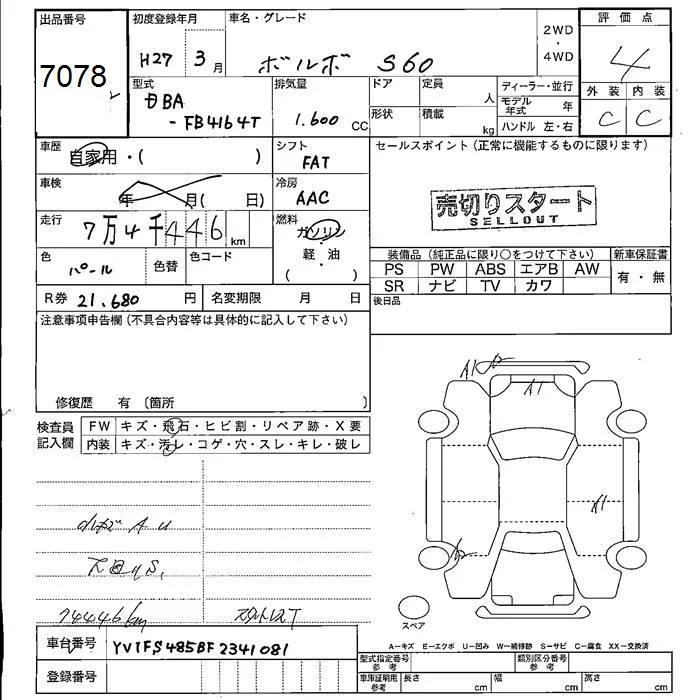 出品番号
7078
初度登録年月
H27 3月
車名・グレード
ボルボ S60
2WD
・
4WD
評価点
4
外装 内装
C C
型式
DBA
-FB4164T
排気量
1.600 CC
ドア
定員
人
形状
積載
kg
ディーラー・並行
モデル年式 年
ハンドル 左・右
車歴
自家用・( )
シフト
FAT
セールスポイント(正常に機能するものに限ります)
売切りスタート
SELLOUT
車検
年 月( 日)
冷房
AAC
走行
7万4千446km
燃料
ガソリン
・
軽・油
( )
色
パール
色替
色コード
装備品(純正品に限り○をつけて下さい)
新車保証書
PS PW ABS エアB AW
有・無
SR ナビ TV カワ
後日品
R券 21.680 円
名変期限 月 日
注意事項申告欄(不具合内容等は具体的に記入して下さい)
修復歴 有〔箇所 〕
検査員
記入欄
FW キズ・飛石・ヒビ割・リペア跡・X要
内装 キズ・汚レ・コゲ・穴・スレ・キレ・破レ
A1
A1
A1
A U
74446km
スペア
A-キズ E-エクボ U-凹み W-補修跡 S-サビ C-腐食 XX-交換済
車台番号
YV1FS485BF2341081
登録番号
型式指定番号
参考
類別区分番号
参考
車庫証明用
参考
長さ cm
幅 cm
高さ cm